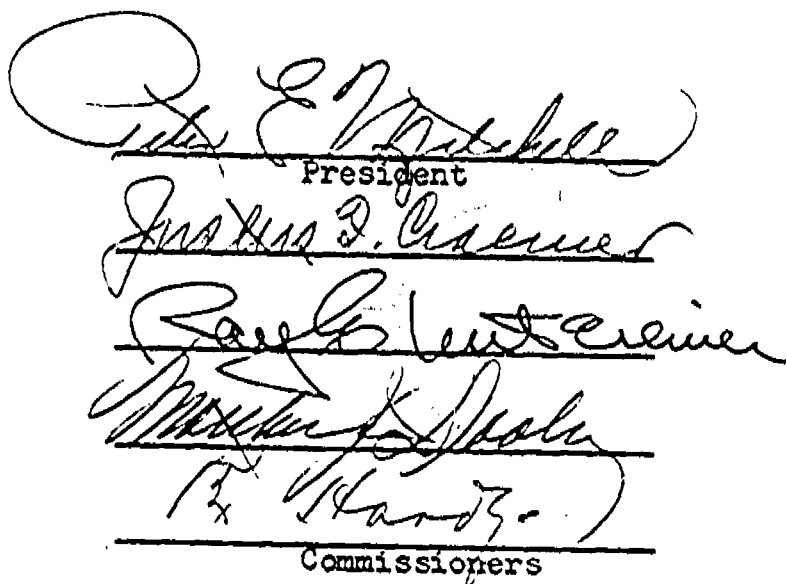 Peter E Mitchell
President
Justus F. Craemer
Ray E. Untereiner
Matthew J. Dooley
Rex Hardy
Commissioners